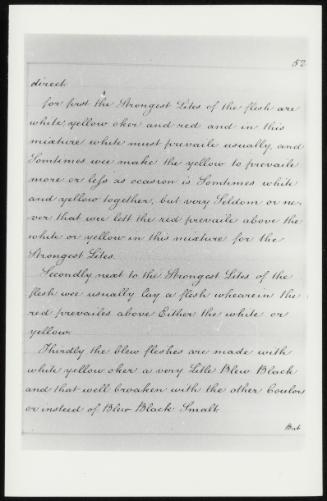 52
direct
for first the Strongest Lites of the flesh are
white, yellow oker and red and in this
mixture white must prevaile usually, and
Somtimes wee make the yellow to prevaile
more or less as ocasion is Somtimes white
and yellow together, but very Seldom or ne-
ver that wee lett the red prevaile above the
white or yellow in this mixture for the
Strongest Lites.
Secondly next to the Strongest Lites of the
flesh wee usually Lay a flesh whearein the
red prevailes above Either the white or
yellow
Thirdly the blew fleshes are made with
white yellow oker a very Litle Blew Black
and that well broaken with the other Coulors
or insteed of Blew Black Smalt
But